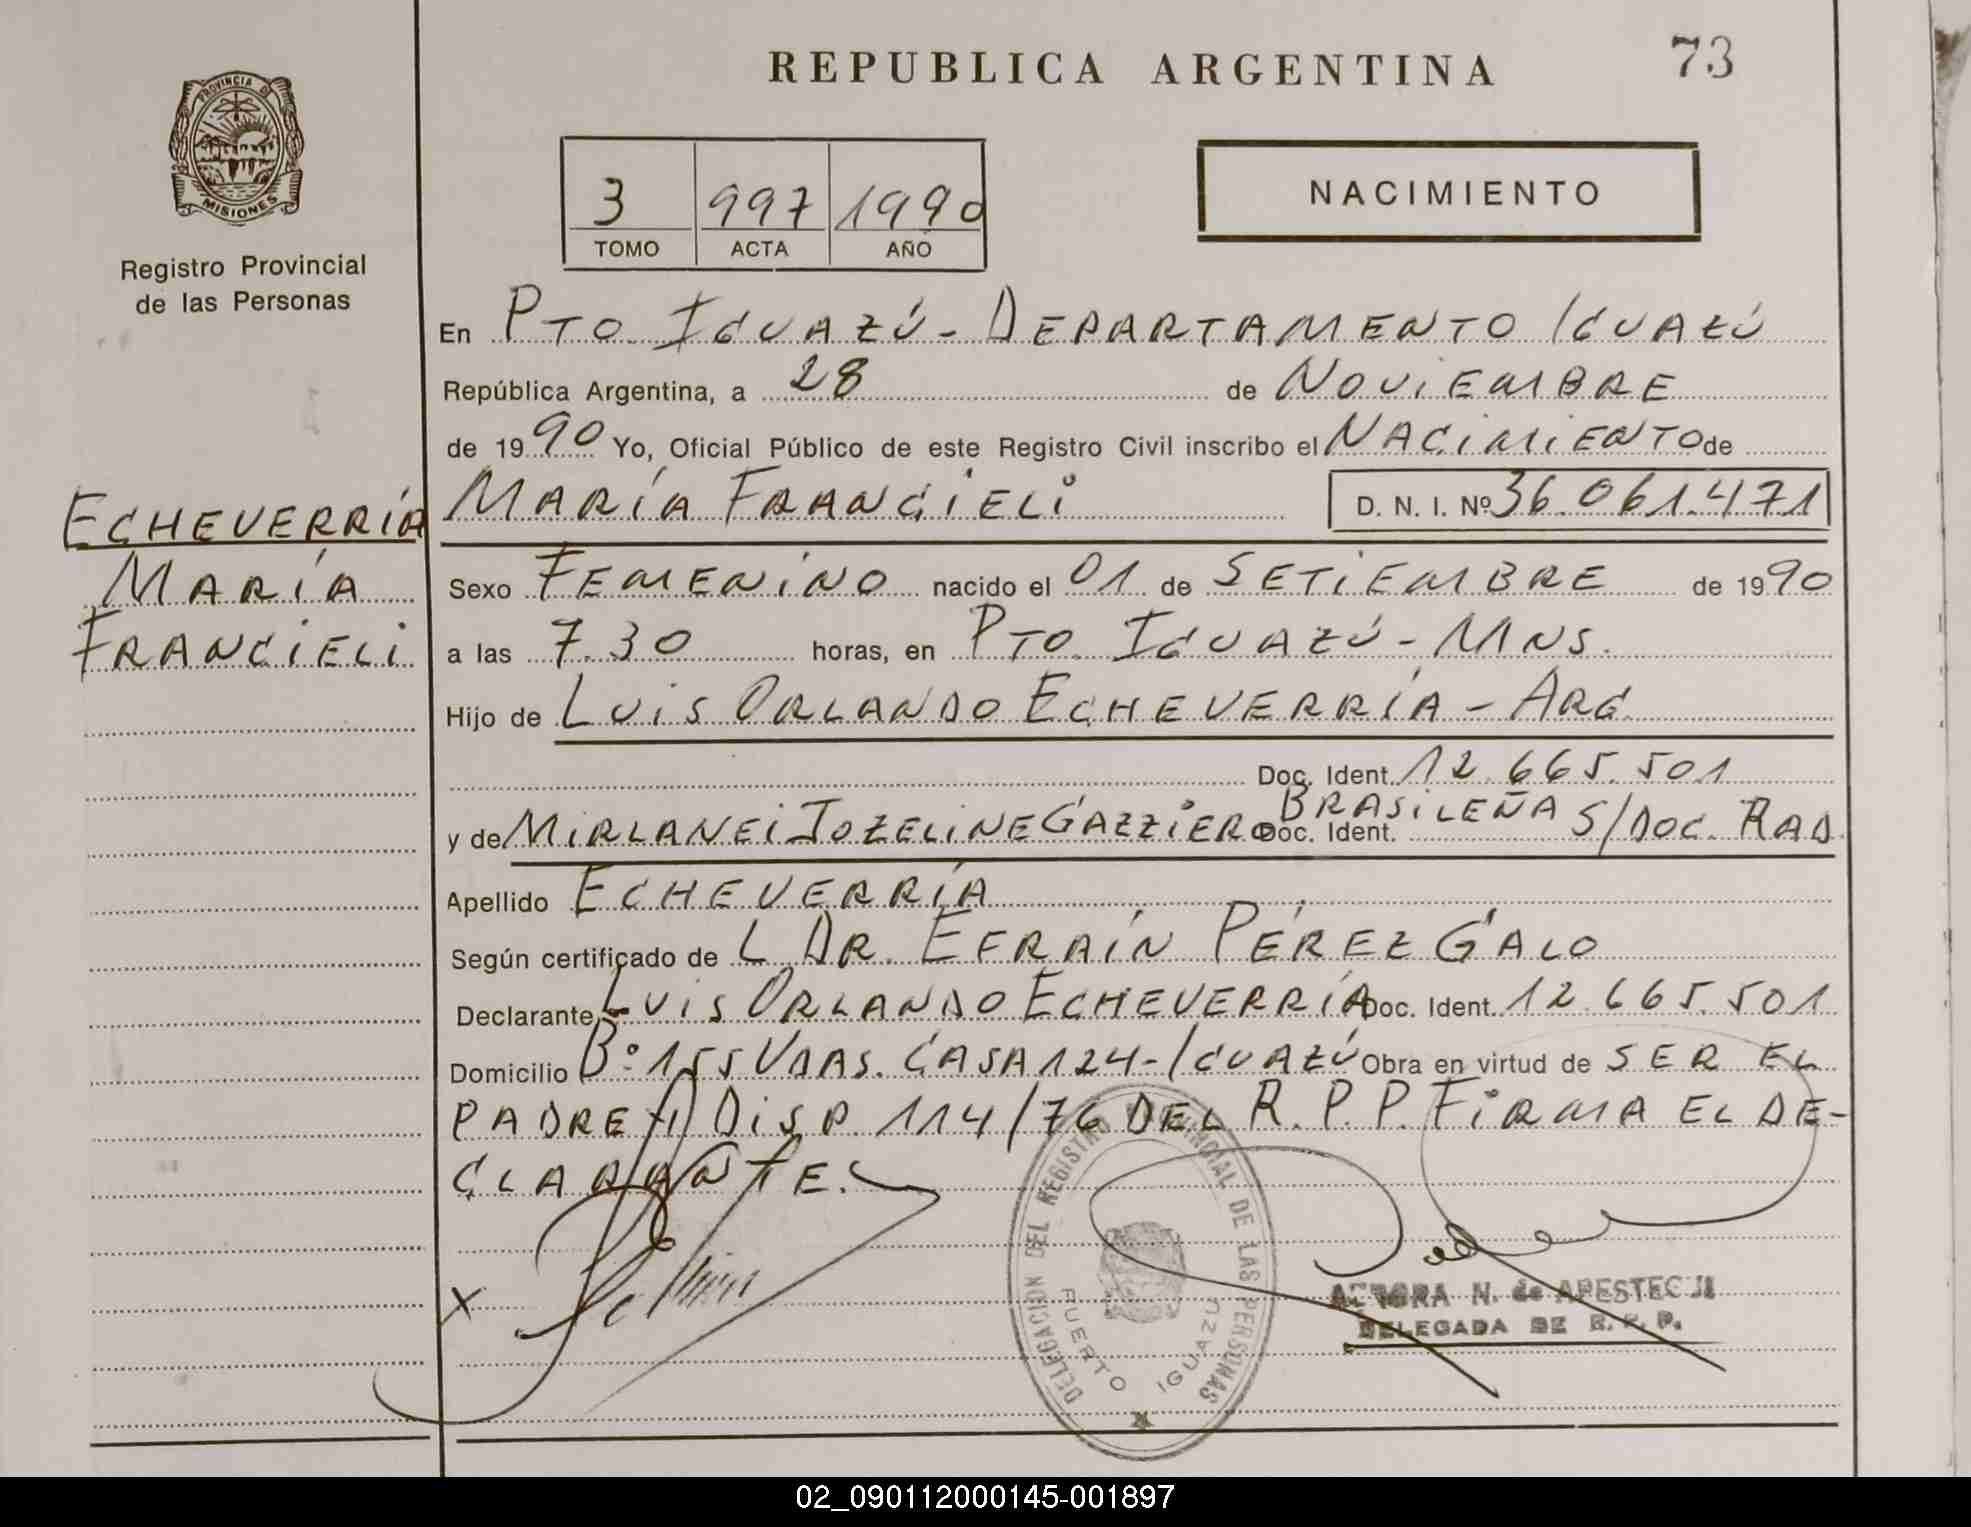 REPUBLICA ARGENTINA
73
PROVINCIA DE
MISIONES
Registro Provincial
de las Personas
3 997 1990
TOMO ACTA AÑO
NACIMIENTO
En PTO. IGUAZÚ - DEPARTAMENTO IGUAZÚ
República Argentina, a 28 de NOVIEMBRE
de 1990 Yo, Oficial Público de este Registro Civil inscribo el NACIMIENTO de
MARÍA FRANCIELI D. N. I. Nº 36.061.471
ECHEVERRÍA
MARÍA
FRANCIELI
Sexo FEMENINO nacido el 01 de SETIEMBRE de 1990
a las 7.30 horas, en PTO. IGUAZÚ - MNS.
Hijo de LUIS ORLANDO ECHEVERRÍA - ARG.
Doc. Ident. 12.665.501
y de MIRLANEI JOZELINE GAZZIERO BRASILEÑA Doc. Ident. S/DOC. RAD.
Apellido ECHEVERRÍA
Según certificado de L DR. EFRAÍN PÉREZ GALO
Declarante LUIS ORLANDO ECHEVERRÍA Doc. Ident. 12.665.501
Domicilio Bº 155 VDAS. CASA 124 - IGUAZÚ Obra en virtud de SER EL
PADRE DISP. 114/76 DEL R.P.P. FIRMA EL DE-
CLARANTE.
X
DELEGACION DEL REGISTRO PROVINCIAL DE LAS PERSONAS
PUERTO IGUAZU
AURORA N. de
DELEGADA DE R. P. P.
02_090112000145-001897